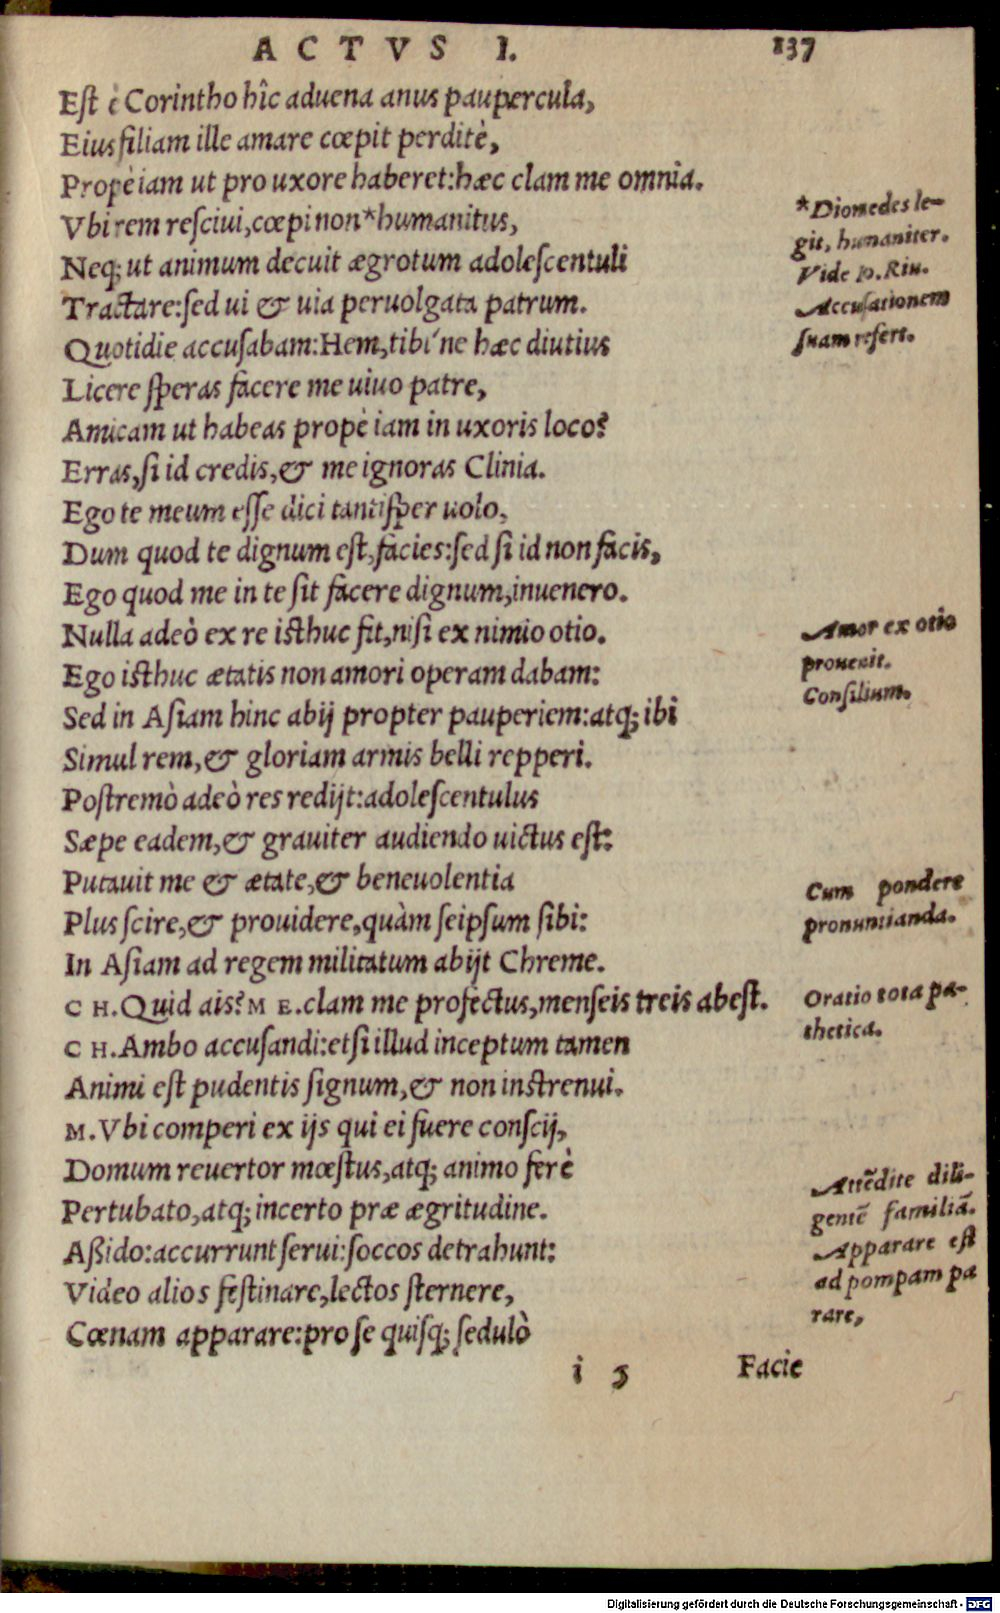 ACTVS I. 137
Est è Corintho hîc aduena anus paupercula,
Eius filiam ille amare cœpit perditè,
Propè iam ut pro uxore haberet: hæc clam me omnia.
Vbi rem resciui, cœpi non *humanitus,
Neq; ut animum decuit ægrotum adolescentuli
Tractare: sed ui & uia peruolgata patrum.
Quotidie accusabam: Hem, tibi´ne hæc diutius
Licere speras facere me uiuo patre,
Amicam ut habeas propè iam in uxoris loco?
Erras, si id credis, & me ignoras Clinia.
Ego te meum esse dici tantisper uolo,
Dum quod te dignum est, facies: sed si id non facis,
Ego quod me in te sit facere dignum, inuenero.
Nulla adeò ex re isthuc fit, nisi ex nimio otio.
Ego isthuc ætatis non amori operam dabam:
Sed in Asiam hinc abij propter pauperiem: atq; ibi
Simul rem, & gloriam armis belli repperi.
Postremò adeò res redijt: adolescentulus
Sæpe eadem, & grauiter audiendo uictus est:
Putauit me & ætate, & beneuolentia
Plus scire, & prouidere, quàm seipsum sibi:
In Asiam ad regem militatum abijt Chreme.
CH. Quid ais? ME. clam me profectus, menseis treis abest.
CH. Ambo accusandi: etsi illud inceptum tamen
Animi est pudentis signum, & non instrenui.
M. Vbi comperi ex ijs qui ei fuere conscij,
Domum reuertor mœstus, atq; animo ferè
Pertubato, atq; incerto præ ægritudine.
Aßido: accurrunt serui: soccos detrahunt:
Video alios festinare, lectos sternere,
Cœnam apparare: pro se quisq; sedulò
i 5 Facie
*Diomedes le-
git, humaniter.
Vide p. Riu.
Accusationem
suam refert.
Amor ex otio
prouenit.
Consilium.
Cum pondere
pronuntianda.
Oratio tota pa-
thetica.
Attēdite dili-
gentē familiā.
Apparare est
ad pompam pa
rare,
Digitalisierung gefördert durch die Deutsche Forschungsgemeinschaft - DFG